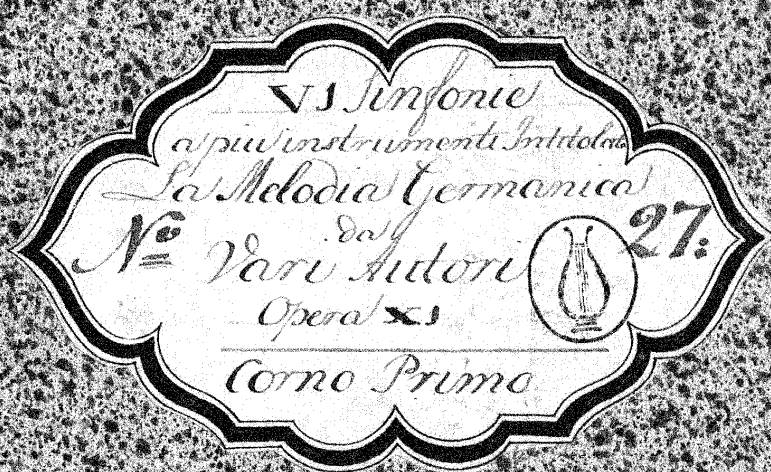 VI Sinfonie
a piu instrumenti Intitolate
La Melodia Germanica
da
No 27:
Vari Autori
Opera XI
Corno Primo